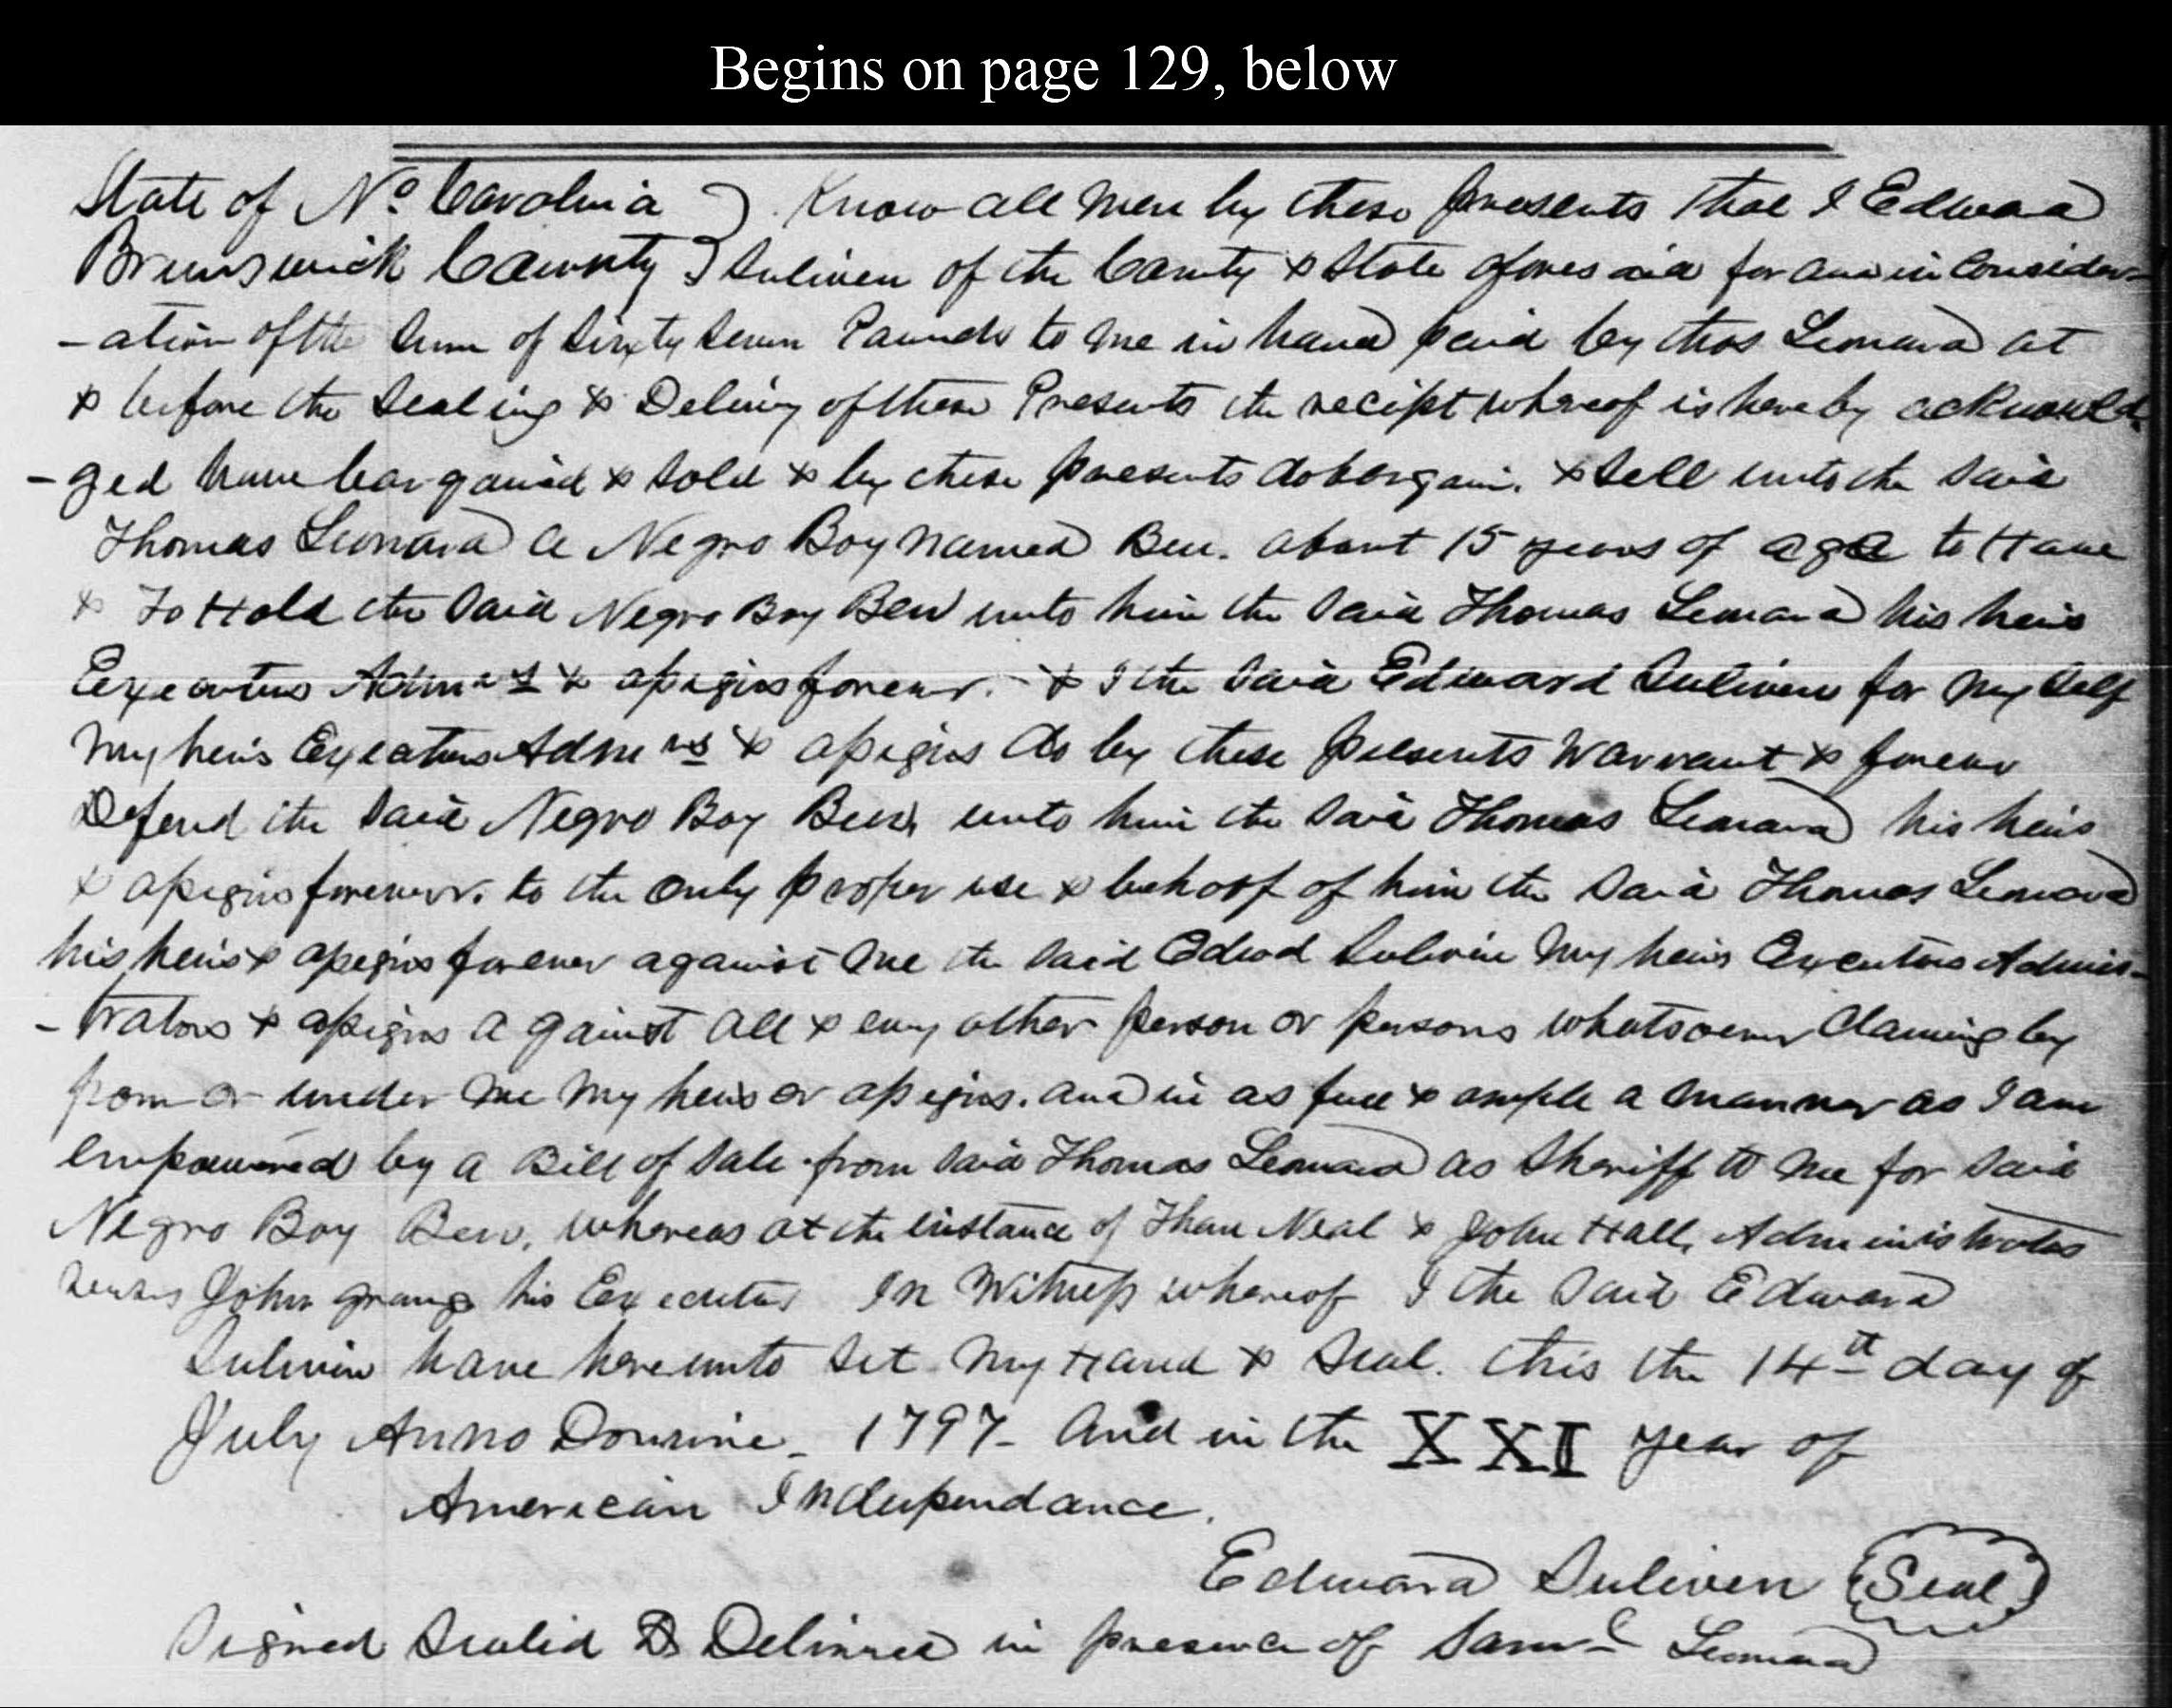 Begins on page 129, below
State of No Carolina } Know all Men by these presents that I Edward
Brunswick County } Suliven of the County & State aforesaid for and in Consider-
-ation of the Sum of Sixty Seven Pounds to me in hand paid by thos Leonard at
& before the Sealing & Delivy of these Presents the recipt whereof is hereby acknowled
-ged have bargained & Sold & by these presents do bargain. & Sell unto the Said
Thomas Leonard a Negro Boy named Ben. about 15 years of age to Have
& To Hold the Said Negro Boy Ben unto him the Said Thomas Leonard his heirs
Executors Admrs & assigns forever. - & I the Said Edward Suliven for My Self
My heirs Executors Admrs & assigns do by these presents Warrant & forever
Defend the Said Negro Boy Ben, unto him the Said Thomas Leonard his heirs
& assigns forever. to the only proper use & behoof of him the Said Thomas Leonard
his heirs & assigns forever against me the Said Edwd Sulivin My heirs Executors Adminis-
-trators & assigns against all & evry other person or persons whatsoever Claiming by
from or under me My heirs or assigns. and in as full & ample a manner as I am
empowered by a Bill of Sale from Said Thomas Leonard as Sheriff to me for Said
Negro Boy Ben. whereas at the instance of Neal & John Hall, Administrators
John his Executor In Witness whereof I the Said Edward
Sulivin have hereunto Set My Hand & Seal. this the 14th day of
July Anno Domine - 1797 - And in the XXI year of
American Independance.
Edward Suliven (Seal)
Signed Sealed & Delivered in presence of Saml Leonard